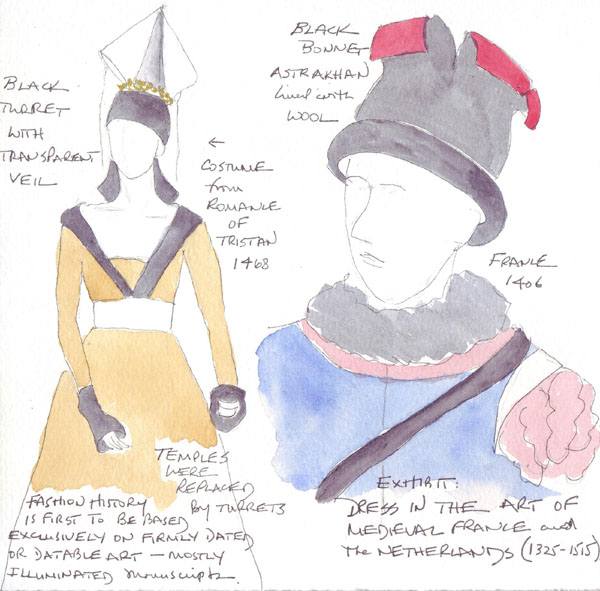 BLACK
TURRET
WITH
TRANSPARENT
VEIL
← COSTUME
from
ROMANCE
OF
TRISTAN
1468
BLACK
BONNET
ASTRAKHAN
lined with
WOOL
FRANCE
1406
TEMPLES
WERE
REPLACED
by TURRETS
FASHION HISTORY
IS FIRST TO BE BASED
EXCLUSIVELY ON FIRMLY DATED
OR DATABLE ART — MOSTLY
ILLUMINATED manuscripts.
EXHIBIT:
DRESS IN THE ART OF
MEDIEVAL FRANCE and
The NETHERLANDS (1325-1515)